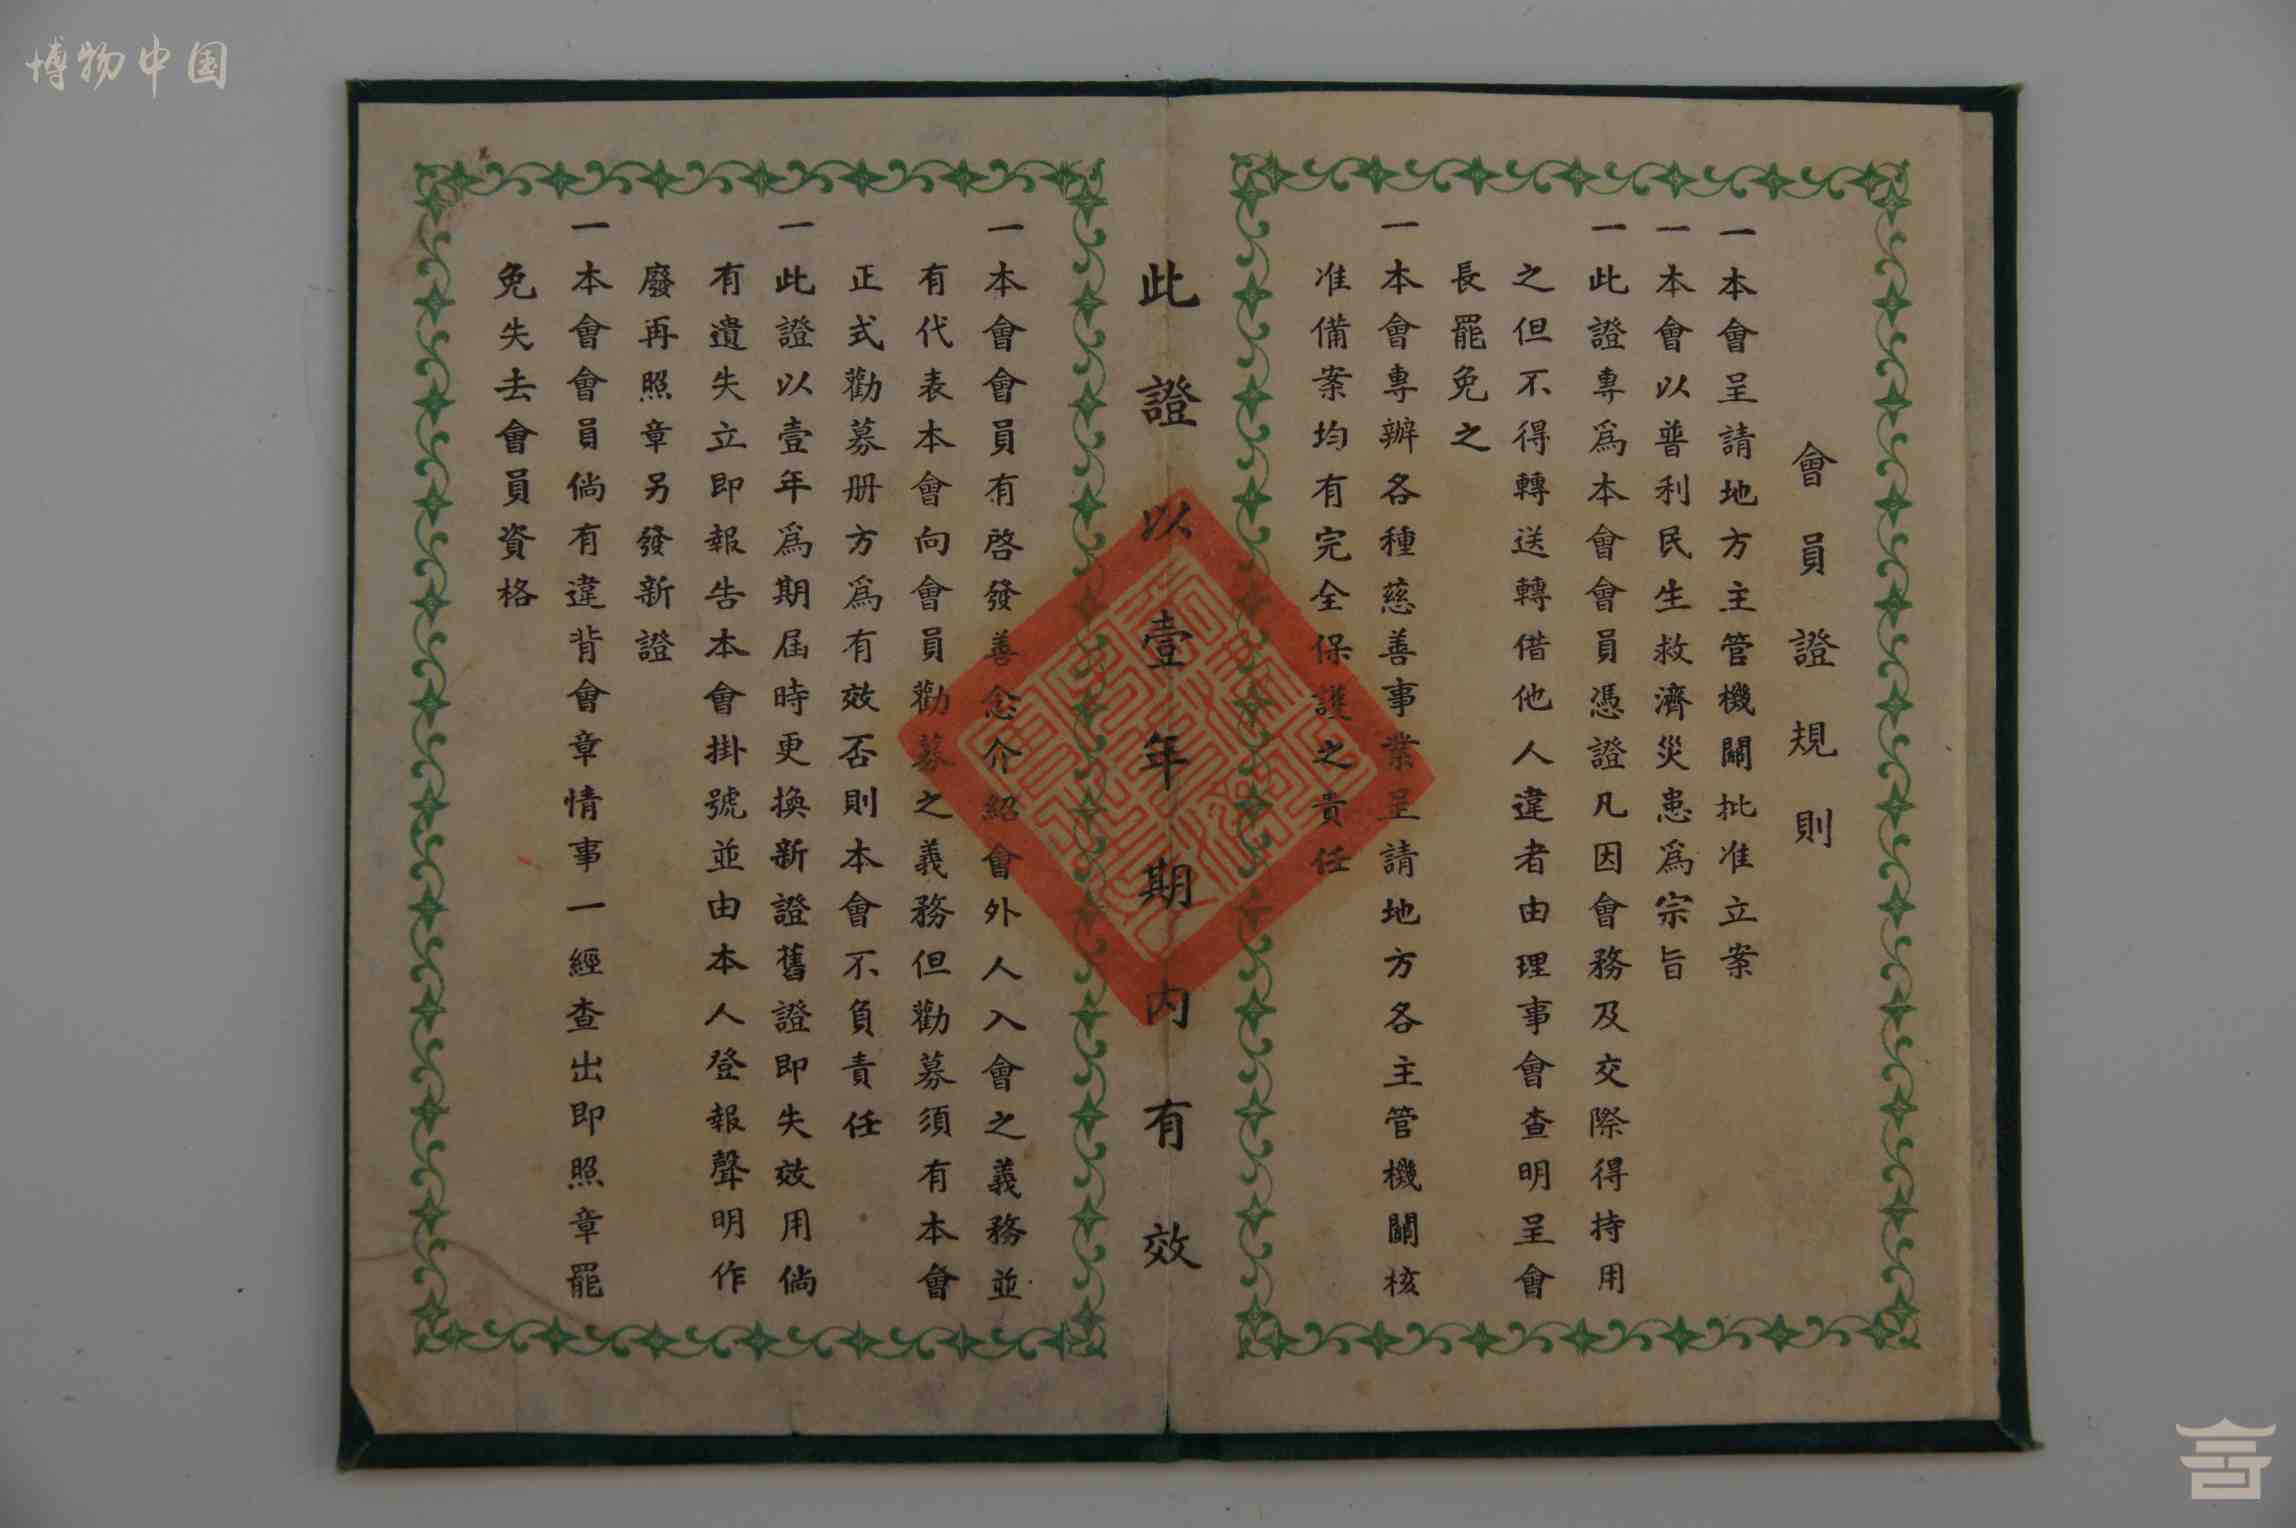 博物中国
會員證規則
一本會呈請地方主管機關批准立案
一本會以普利民生救濟災患爲宗旨
一此證專爲本會會員憑證凡因會務及交際得持用
之但不得轉送轉借他人違者由理事會查明呈會
長罷免之
一本會專辦各種慈善事業呈請地方各主管機關核
准備案均有完全保護之責任
此證以壹年期內有效
一本會會員有啓發善念介紹會外人入會之義務並
有代表本會向會員勸募之義務但勸募須有本會
正式勸募册方爲有效否則本會不負責任
一此證以壹年爲期屆時更換新證舊證即失效用倘
有遺失立即報告本會掛號並由本人登報聲明作
廢再照章另發新證
一本會會員倘有違背會章情事一經查出即照章罷
免失去會員資格